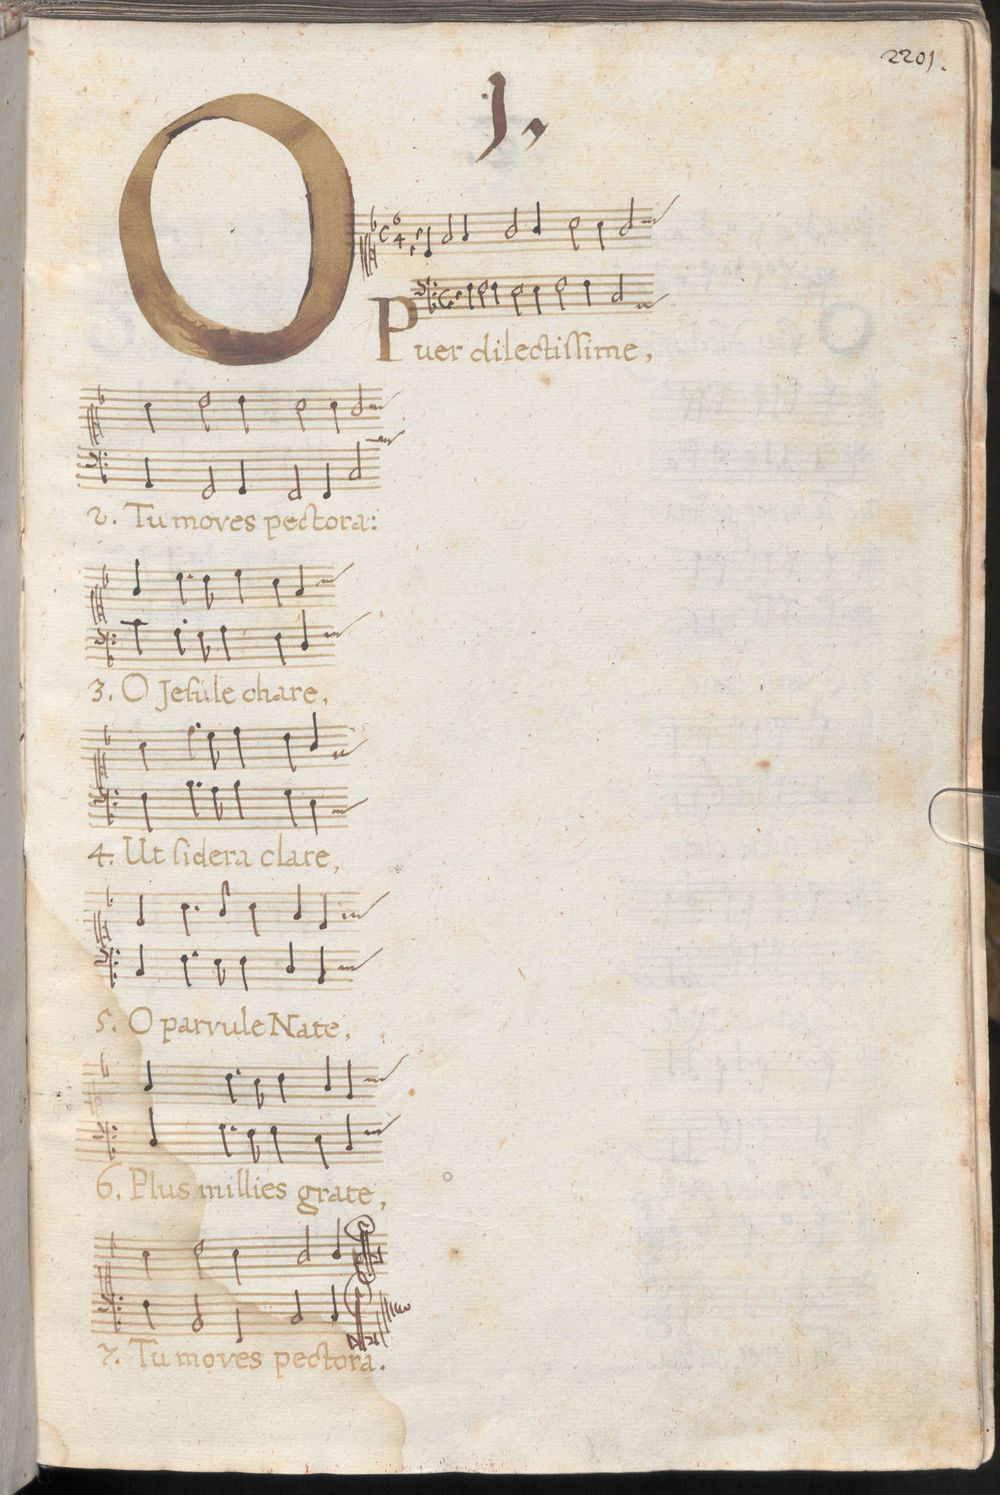 2201.
1.
O
Puer dilectiſſime,
2. Tu moves pectora:
3. O Jeſule chare,
4. Ut ſidera clare,
5. O parvule Nate,
6. Plus millies grate,
7. Tu moves pectora.